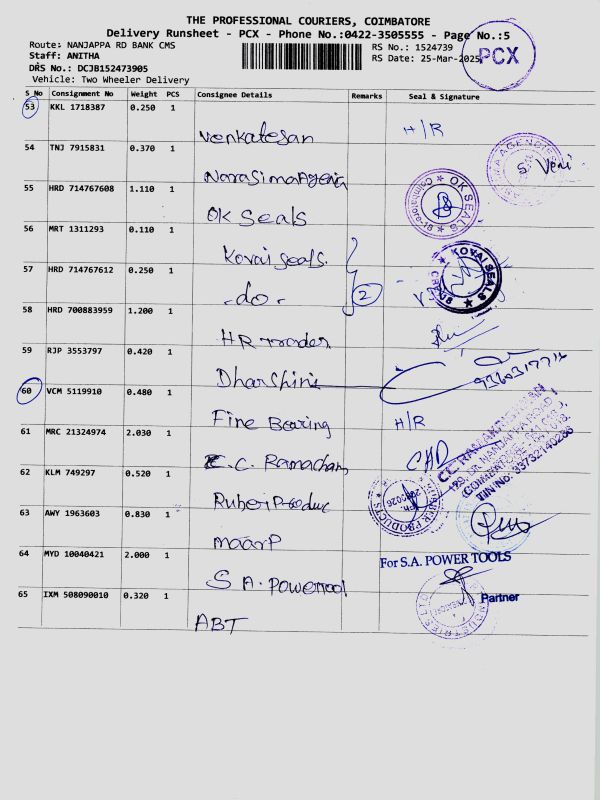 THE PROFESSIONAL COURIERS, COIMBATORE
Delivery Runsheet - PCX - Phone No.:0422-3505555 - Page No.:5
Route: NANJAPPA RD BANK CMS RS No.: 1524739
Staff: ANITHA RS Date: 25-Mar-2025
DRS No.: DCJB152473905
Vehicle: Two Wheeler Delivery
PCX
S_No Consignment No Weight PCS Consignee Details Remarks Seal & Signature
53 KKL 1718387 0.250 1
Venkatesan H/R
54 TNJ 7915831 0.370 1
Narasima Agencia S. Veni
55 HRD 714767608 1.110 1
OK Seals OK SEALS
56 MRT 1311293 0.110 1
Kovai Seals. KOVAI SEALS
57 HRD 714767612 0.250 1
-do- 2
58 HRD 700883959 1.200 1
HR Trader
59 RJP 3553797 0.420 1
Dharshini
60 VCM 5119910 0.480 1
Fine Bearing H/R
61 MRC 21324974 2.030 1
C. Ramacham
62 KLM 749297 0.520 1
63 AWY 1963603 0.830 1
64 MYD 10040421 2.000 1
For S.A. POWER TOOLS
S A. Powertool
Partner
65 IXM 508090010 0.320 1
ABT